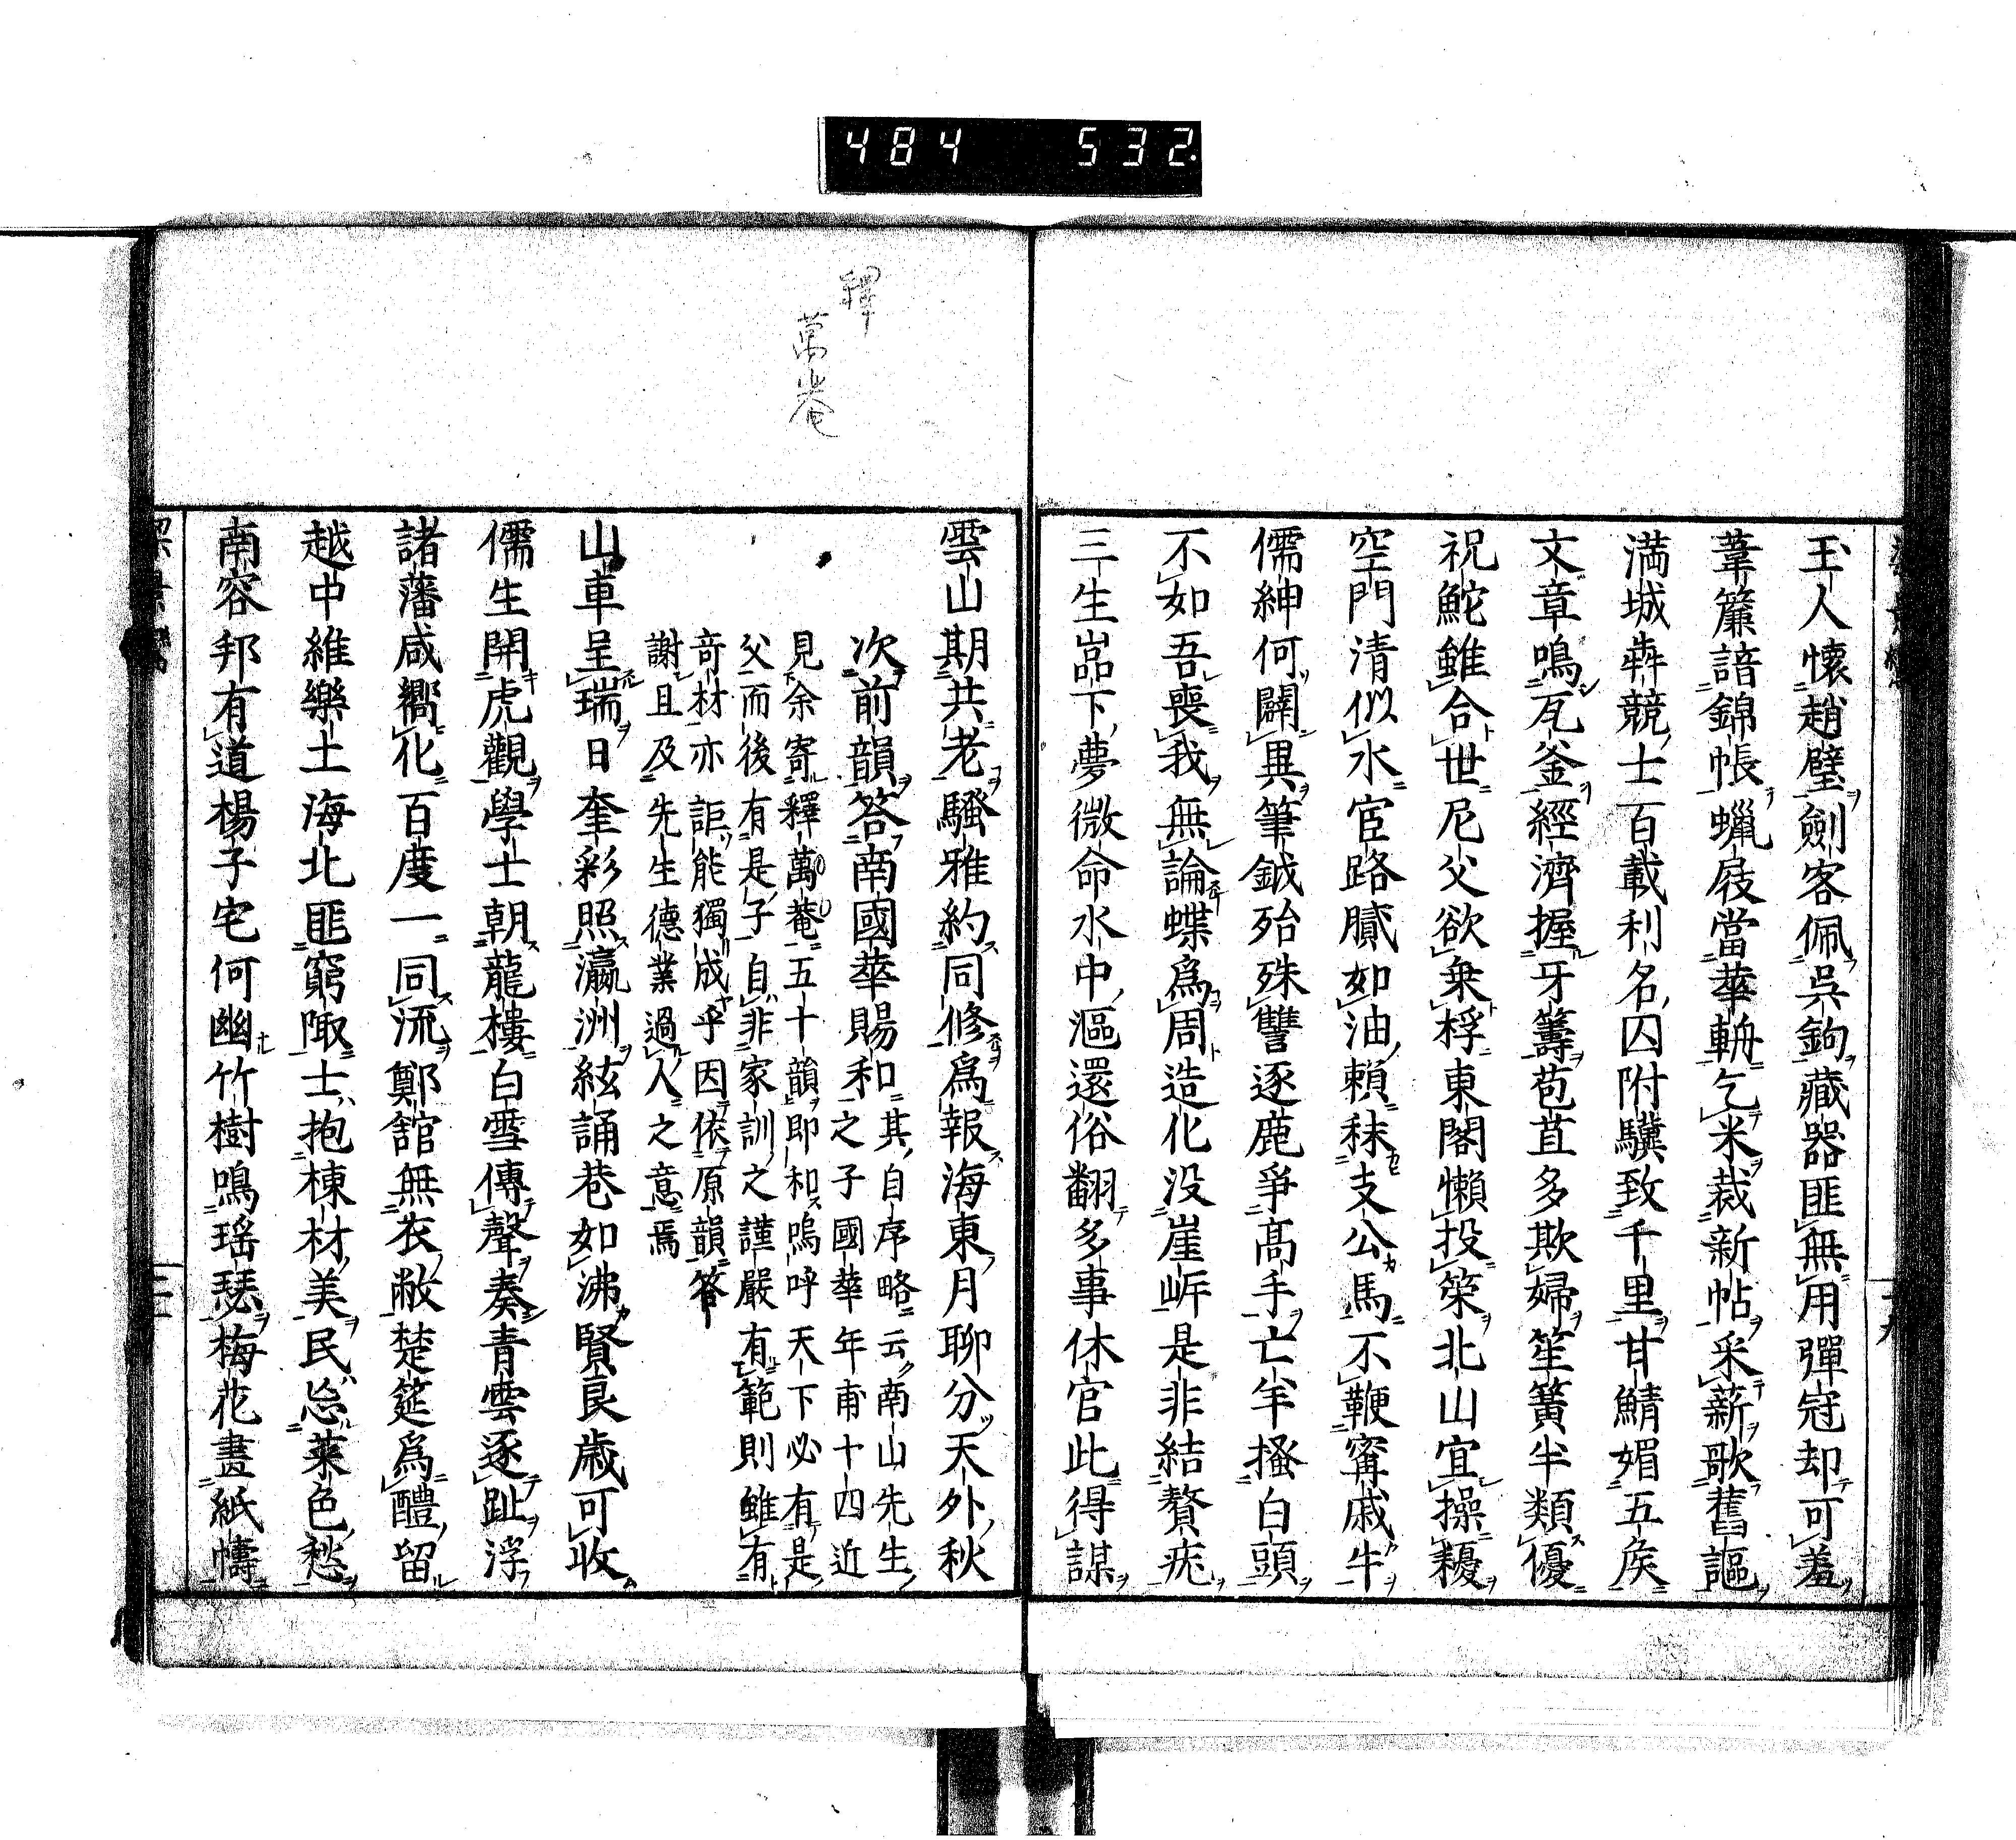 484 532
玉人懷趙璧劍客佩吳鉤藏器匪無用彈冠却可羞
葦簾諳錦帳蠟屐當華輈乞米裁新帖采薪歌舊謳
満城犇競士百載利名囚附驥致千里甘鯖媚五矦
文章鳴瓦釜經濟握牙籌苞苴多欺婦笙簧半類優
祝鮀雖合世尼父欲乗桴東閣懶投策北山宜操耰
空門清似水宦路膩如油賴秣支公馬不鞭甯戚牛
儒紳何闢異筆鉞殆殊讐逐鹿爭髙手亡羊搔白頭
不如吾喪我無論蝶為周造化没崖㟁是非結贅疣
三生嵓下夢微命水中漚還俗翻多事休官此得謀
雲山期共老騷雅約同修為報海東月聊分天外秋
次前韻答南國華賜和其自序略云南山先生之子國華年甫十四近
見余寄釋萬菴五十韻即和嗚呼天下必有是
父而後有是子自非家訓之謹嚴有範則雖有
竒材亦詎能獨成乎因依原韻答
謝且及先生德業過人之意焉
山車呈瑞日奎彩照瀛洲絃誦巷如沸賢良歳可收
儒生開虎觀學士朝龍樓白雪傳聲奏青雲逐趾浮
諸藩咸嚮化百度一同流鄭舘無衣敝楚筵為醴留
越中維樂土海北匪窮陬士抱棟材美民㤀菜色愁
南容邦有道楊子宅何幽竹樹鳴瑶瑟梅花畫紙幬
釋
萬菴